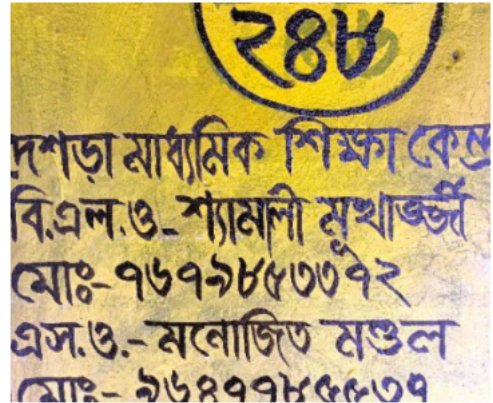 ২৪৮
দশড়া মাধ্যমিক শিক্ষা কেন্দ্র
বি.এল.ও-শ্যামলী মূখার্জ্জী
মোঃ-৭৬৭৯৮৫৩৩৭২
এস.ও.-মনোজিত মণ্ডল
মোঃ-৯৬৪৭৭৮৫৫৩৭